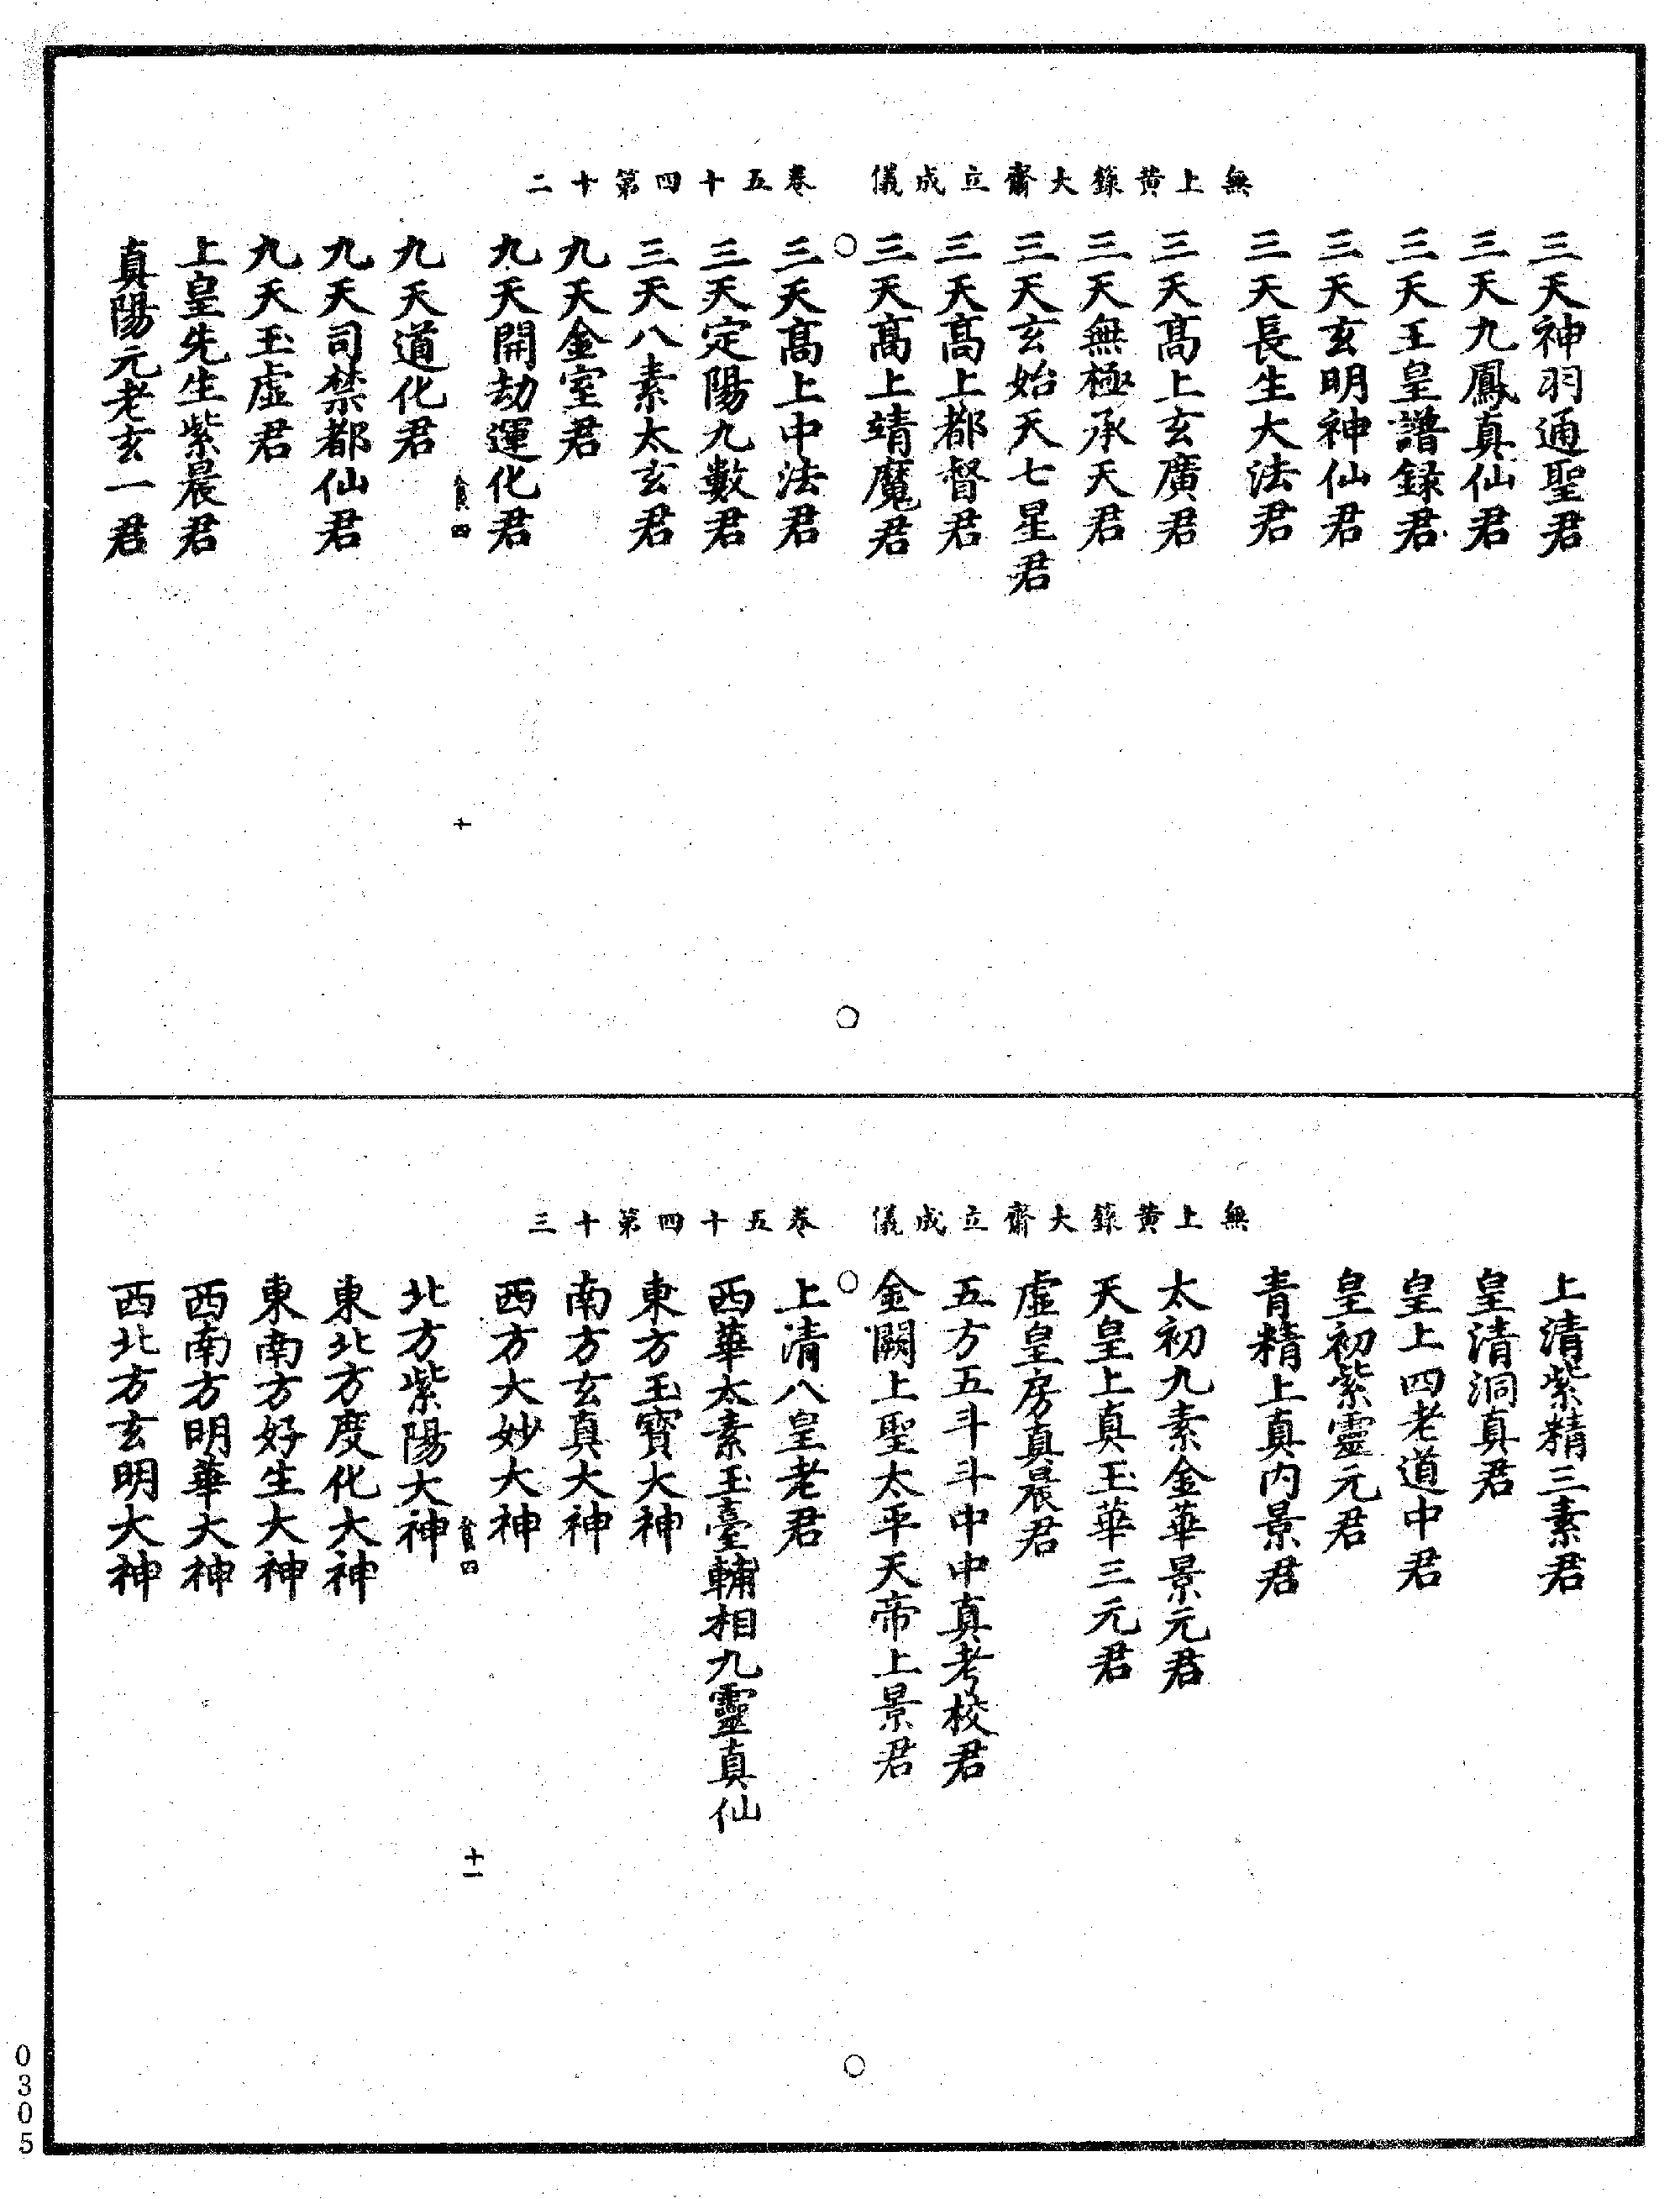 無上黃籙大齋立成儀 卷五十四第十二
三天神羽通聖君
三天九鳳真仙君
三天王皇譜録君
三天玄明神仙君
三天長生大法君
三天髙上玄廣君
三天無極承天君
三天玄始天七星君
三天髙上都督君
三天髙上靖魔君
三天髙上中法君
三天定陽九數君
三天八素太玄君
九天金室君
九天開劫運化君
四
十
九天道化君
九天司禁都仙君
九天玉虛君
上皇先生紫晨君
真陽元老玄一君
無上黃籙大齋立成儀 卷五十四第十三
上清紫精三素君
皇清洞真君
皇上四老道中君
皇初紫靈元君
青精上真内景君
太初九素金華景元君
天皇上真玉華三元君
虛皇房真晨君
五方五斗斗中中真考校君
金闕上聖太平天帝上景君
上清八皇老君
西華太素玉臺輔相九靈真仙
東方玉寳大神
南方玄真大神
西方大妙大神
四
十一
北方紫陽大神
東北方度化大神
東南方好生大神
西南方明華大神
西北方玄明大神
0305